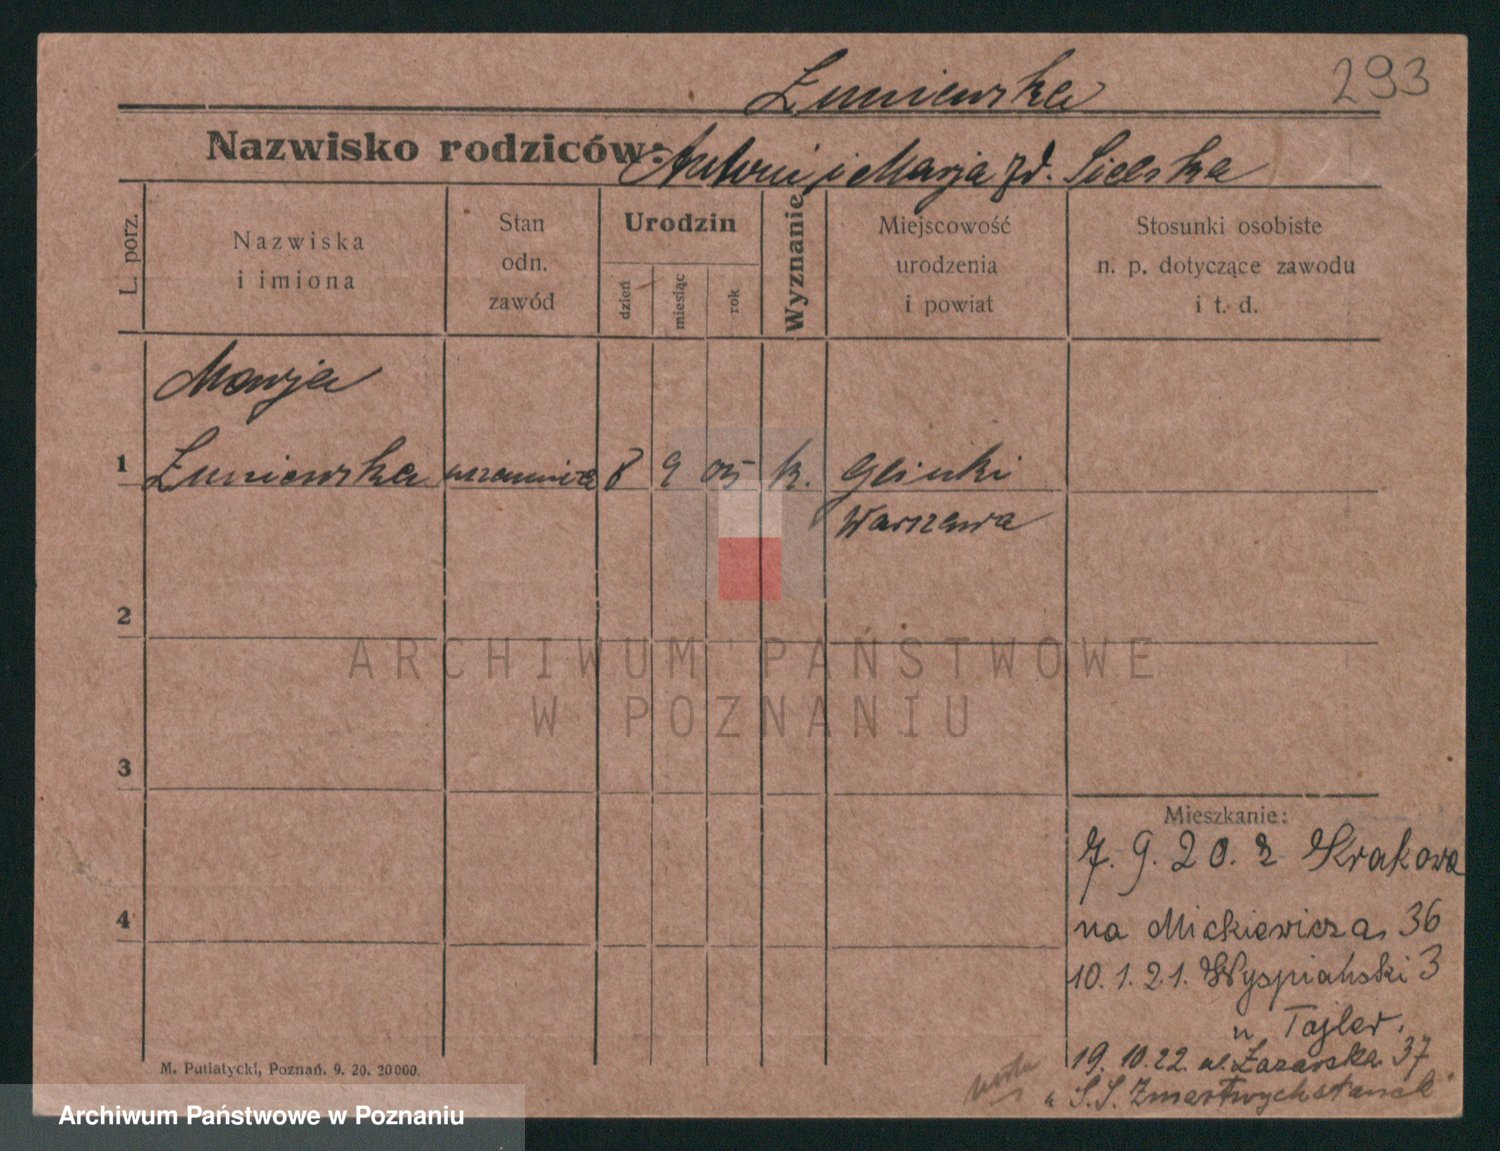 Żuniewska 293
Nazwisko rodziców: Antoni i Marja zd. Sielska
L. porz.
Nazwiska
i imiona
Stan
odn.
zawód
Urodzin
dzień
miesiąc
rok
Wyznanie
Miejscowość
urodzenia
i powiat
Stosunki osobiste
n. p. dotyczące zawodu
i t. d.
Marja
1 Żuniewska uczennica 8 9 05 k. Glinki
Warszawa
2
ARCHIWUM PAŃSTWOWE
W POZNANIU
3
Mieszkanie:
7. 9. 20. z Krakowa
4 na Mickiewicza 36
10. 1. 21. Wyspiański 3
u Tajler.
19. 10. 22 ul. Łazarska 37
u S.S. Zmartwychstanek
M. Putiatycki, Poznań. 9. 20. 20000.
Archiwum Państwowe w Poznaniu